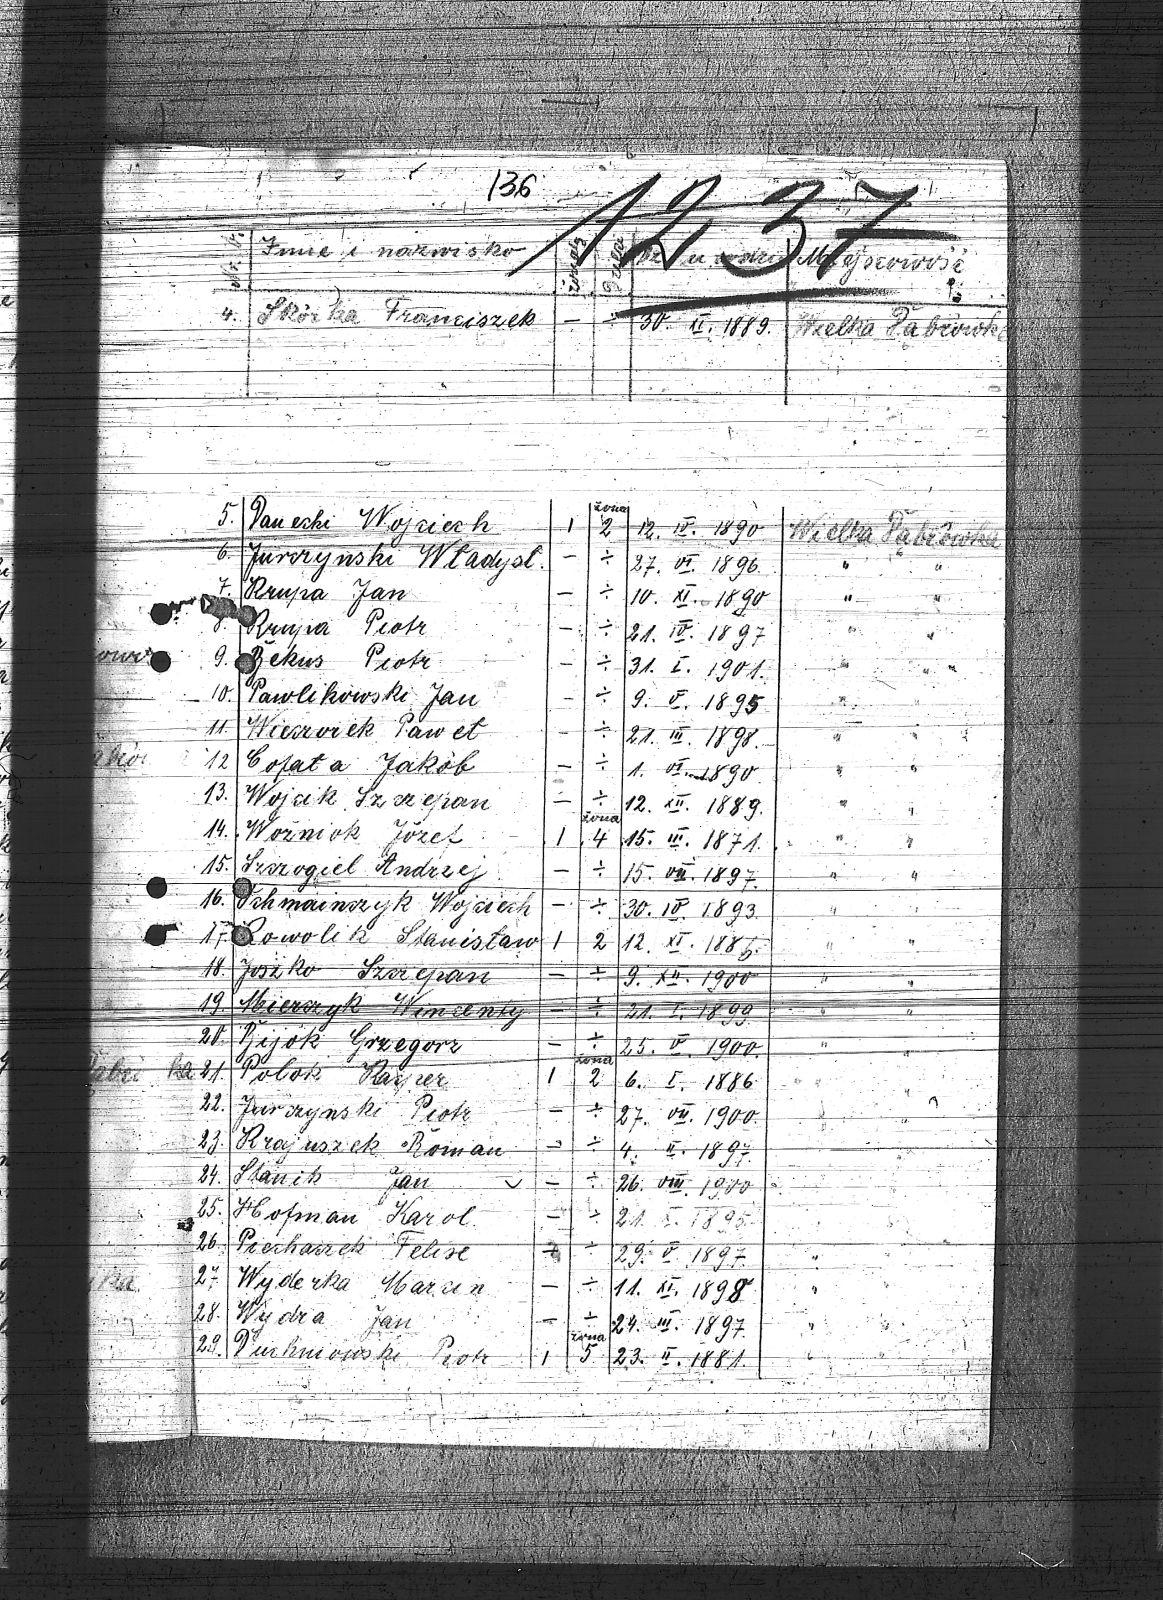 136
1237
Imię i nazwisko Miejscowość
4. Skórka Franciszek — ÷ 30. 1889. Wielka Dąbrówka
żona
5. Wojciech 1 2 12. IV. 1890 Wielka Dąbrówka
6. Jurczynski Władysł. — ÷ 27. VI. 1896. " "
7. Krupa Jan — ÷ 10. XI. 1890 " "
8. Krupa Piotr — ÷ 21. IV. 1897 " "
9. Bekus Piotr — ÷ 31. I. 1901. " "
10. Pawlikowski Jan — ÷ 9. V. 1895 " "
11. Wieszoiek Paweł — ÷ 21. III. 1898. " "
12 Cofała Jakób — ÷ 1. VI. 1890 " "
13. Wojcik Szczepan — ÷ 12. XII. 1889. " "
żona
14. Woźniok Józef 1 4 15. III. 1871. " "
15. Szczogiel Andrzej — ÷ 15. VIII. 1897. " "
16. Wojciech — ÷ 30. IV. 1893. " "
17. Kowolik Stanisław 1 2 12. XI. " "
18. Joszko Szczepan — ÷ 9. XII. 1900 " "
19. Mierczyk Wincenty — ÷ 21. I. 1899 " "
20. Grzegorz — ÷ 25. V. 1900. "
żona
21. Polok Kasper 1 2 6. I. 1886
22. Jurczynski Piotr — ÷ 27. VII. 1900.
23. Krajuszek Roman — ÷ 4. II. 1897.
24. Stanik Jan — ÷ 26. VIII. 1900
25. Hofman Karol — ÷ 21. I. 1895.
26. Piechaczek Felise ÷ 29. V. 1897. "
27. Wyderka Marcin — ÷ 11. XI. 1898 "
28. Wydra Jan — ÷ 24. III. 1897. " "
żona
29. Piotr 1 5 23. II. 1881. " "